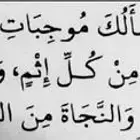 سْأَلُكَ مُوجِبَاتِ
مِنْ كُلِّ إِثْمٍ، وَ
وَالنَّجَاةَ مِنَ ال